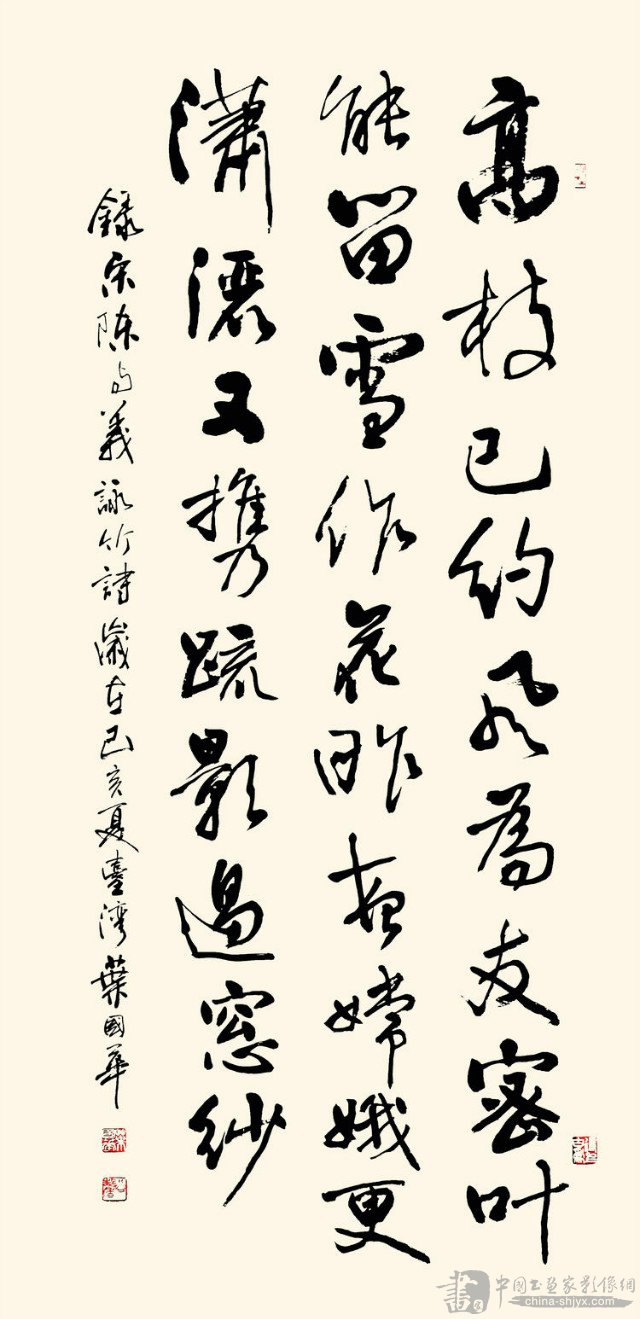 高枝已约风为友密叶
能留雪作花昨夜嫦娥更
潇洒又携疏影过窓纱
録宋陈与義詠竹詩歲在己亥夏臺湾葉國華
中國书画家影像網
china-shjyx.com